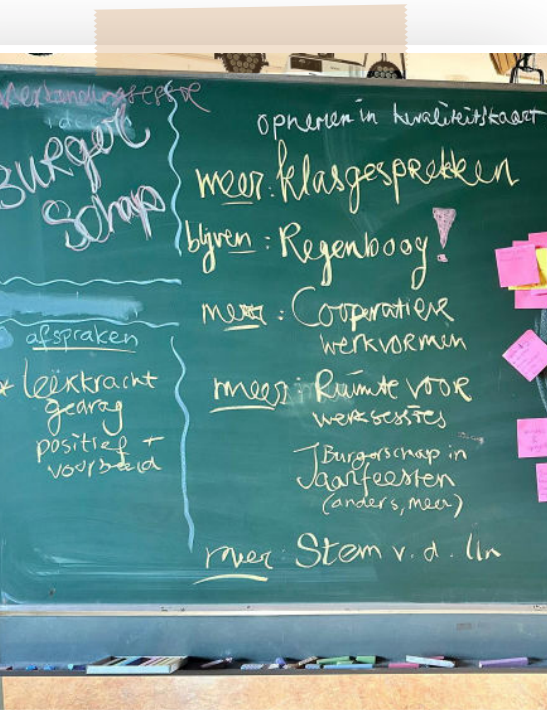 Burger
Schap
afspraken
* leerkracht
gedrag
positief +
voorbeeld
opnemen in kwaliteitskaart
meer: klasgesprekken
blijven: Regenboog!
meer: Coöperatieve
werkvormen
meer: Ruimte voor
werksessies
Burgerschap in
Jaarfeesten
(anders, meer)
meer: Stem v.d. lln